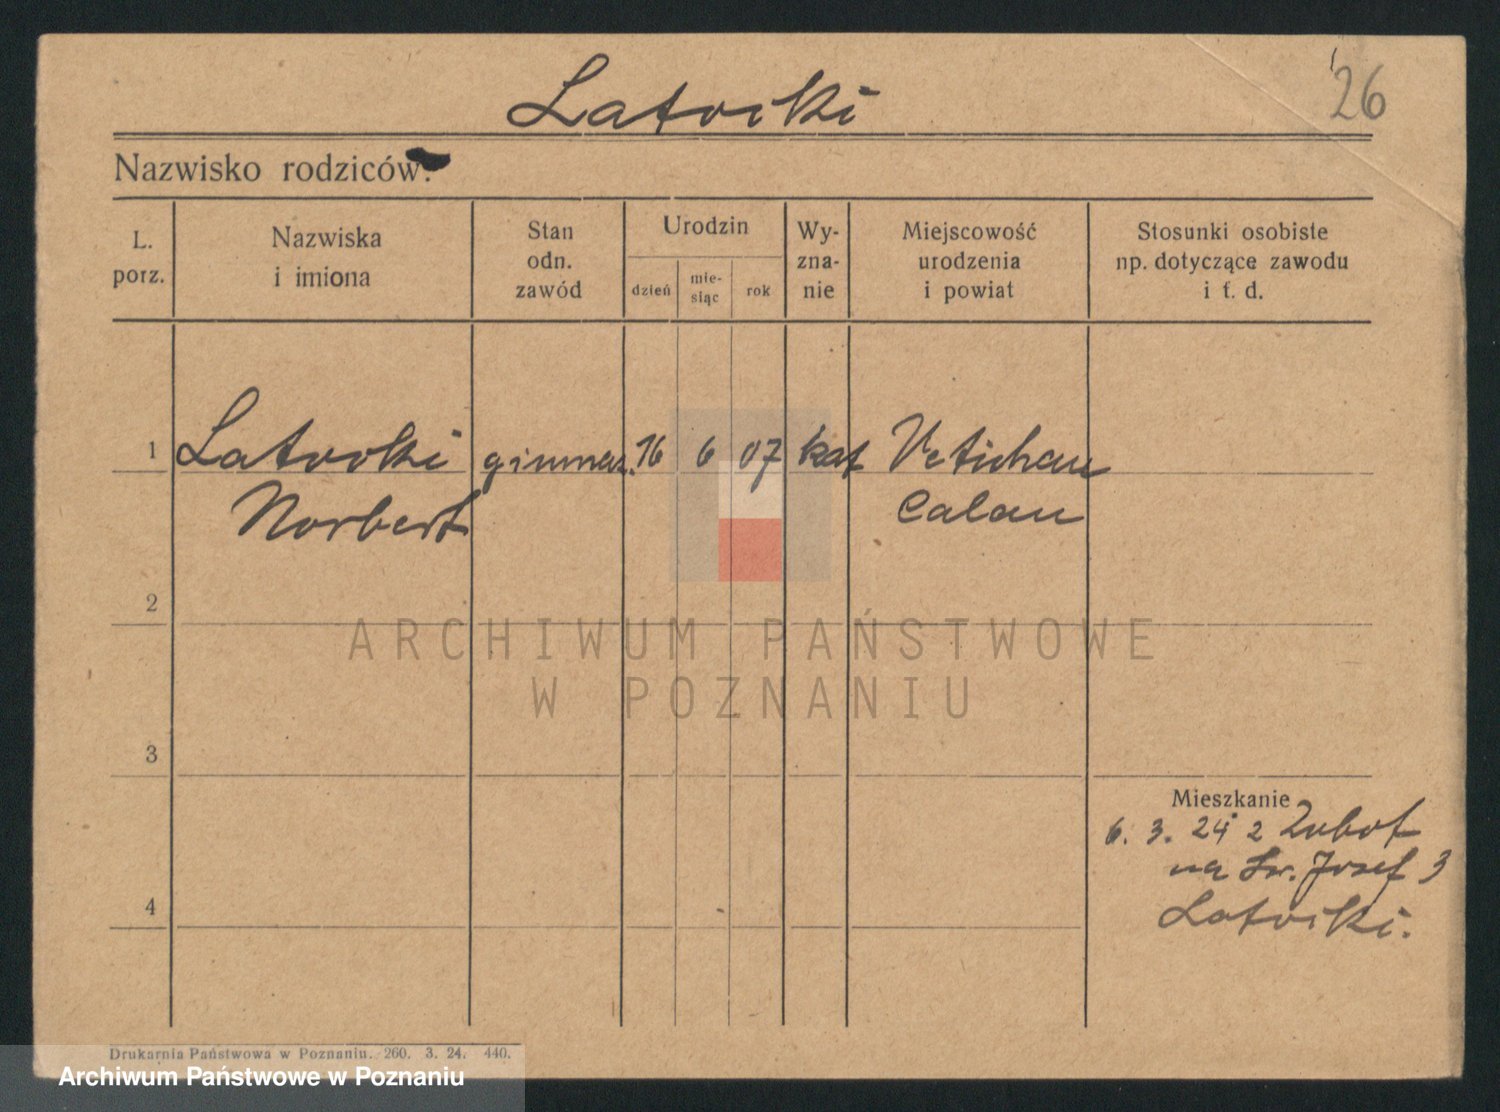 Latviki
26
Nazwisko rodziców:
L. porz.
Nazwiska i imiona
Stan odn. zawód
Urodzin
dzień
mie-siąc
rok
Wy-zna-nie
Miejscowość urodzenia i powiat
Stosunki osobiste np. dotyczące zawodu i t. d.
1 gimnaz. 16 6 07 kat
Norbert Calau
2
3
Mieszkanie
6. 3. 24 z
na Św. Josef 3
4
Latviki.
Drukarnia Państwowa w Poznaniu. 260. 3. 24. 440.
ARCHIWUM PAŃSTWOWE
W POZNANIU
Archiwum Państwowe w Poznaniu